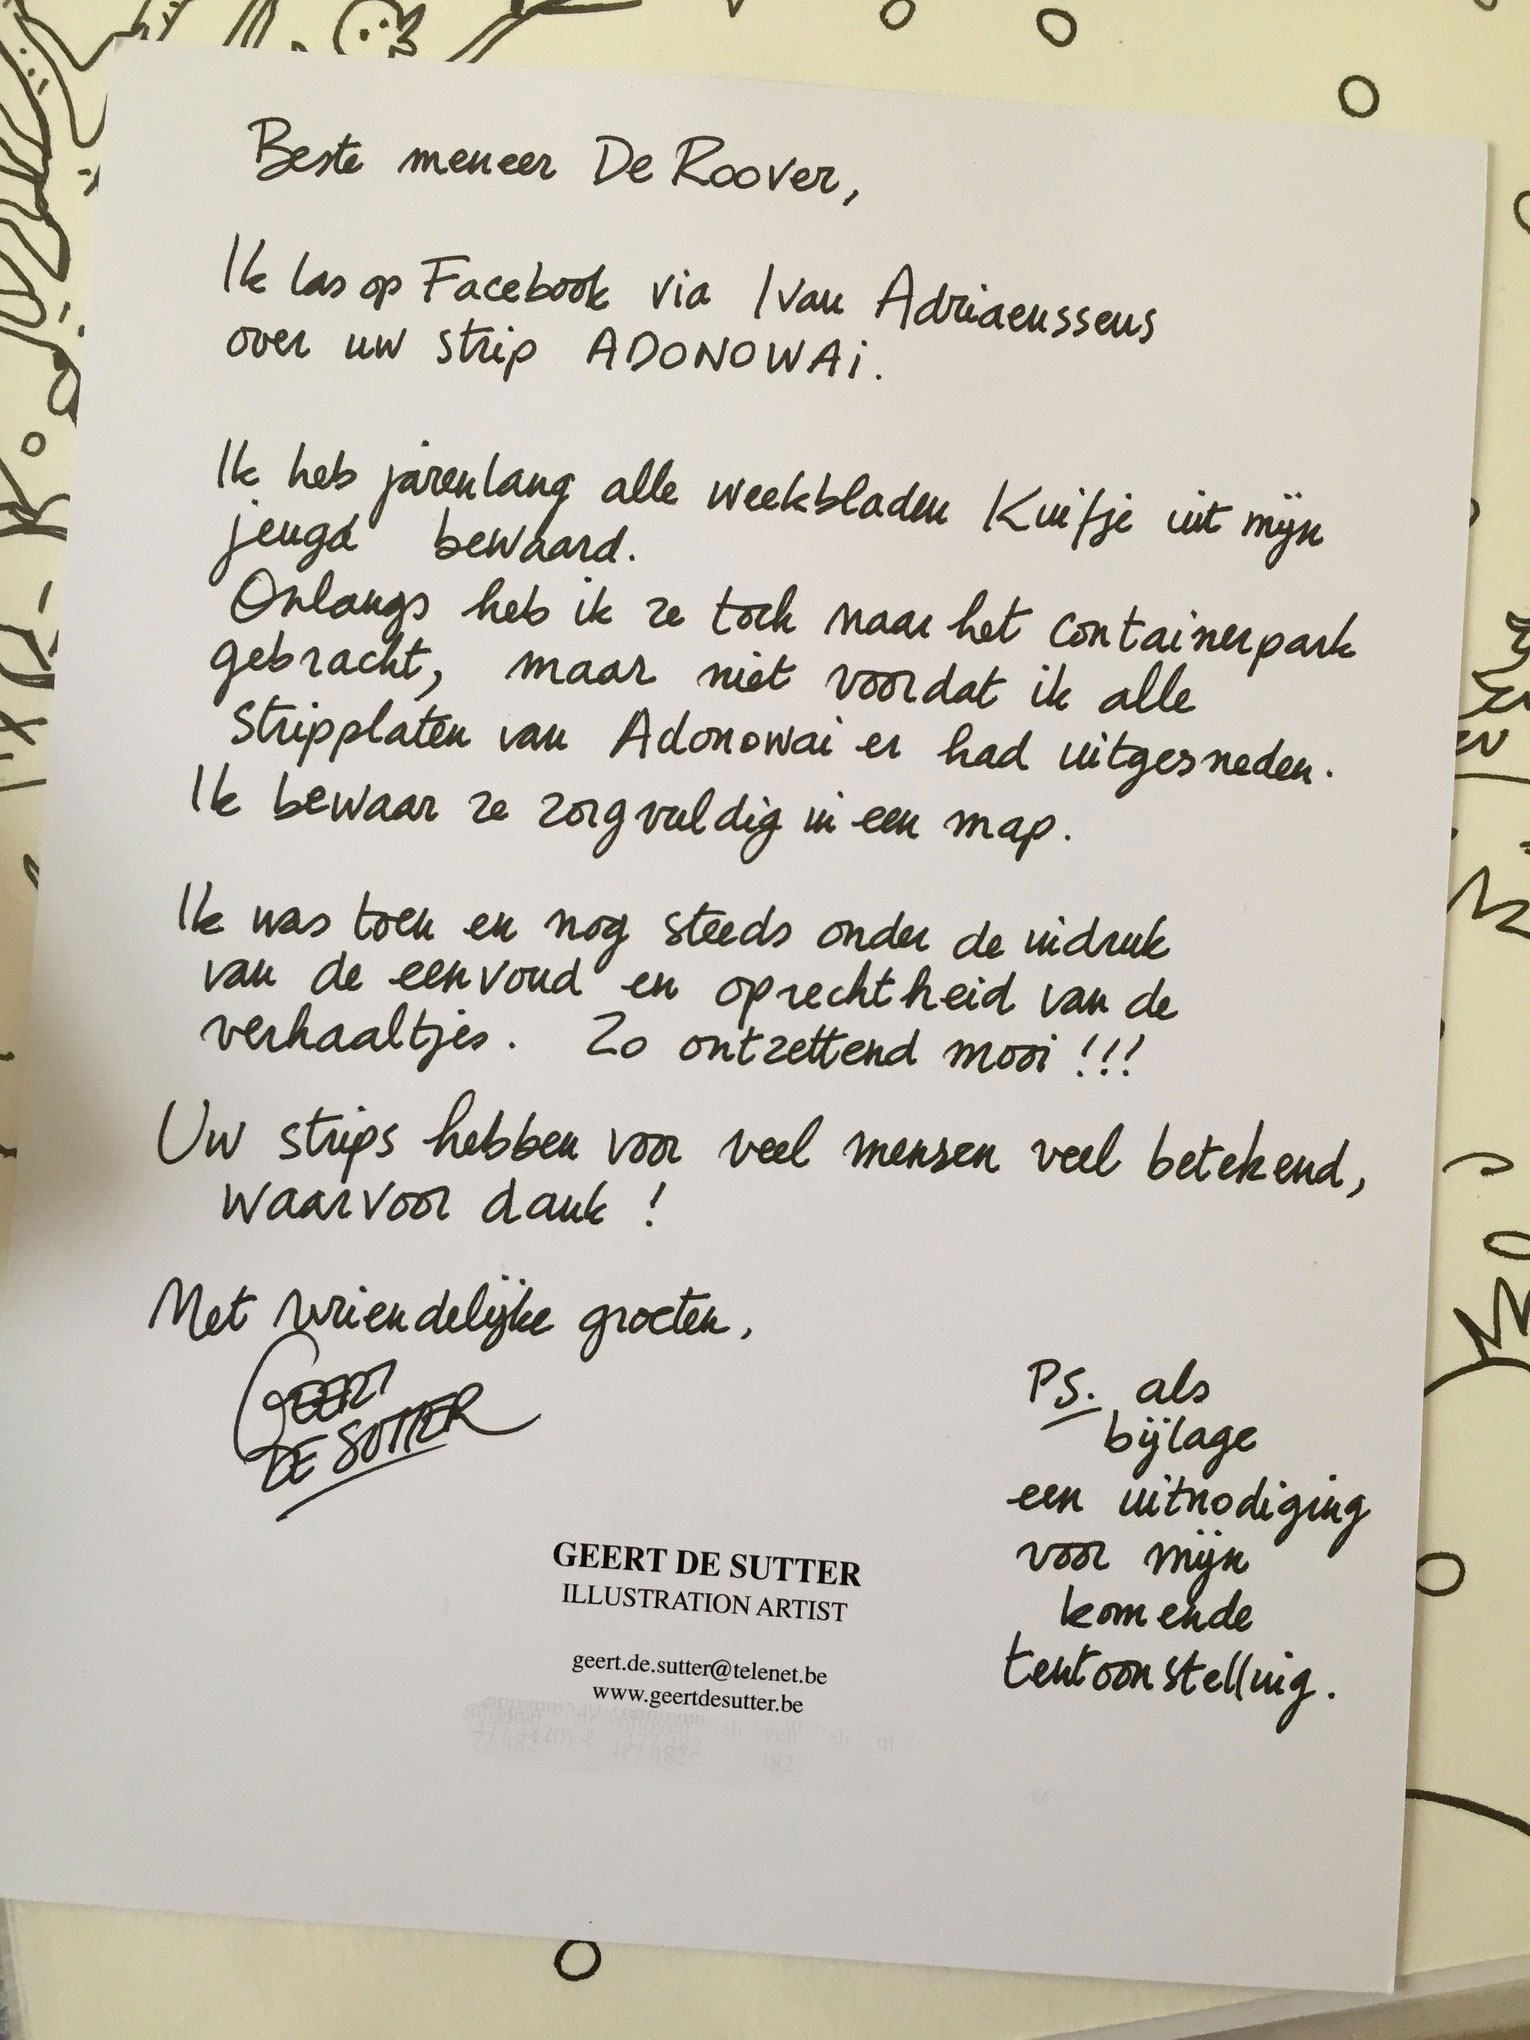 Beste meneer De Roover,
Ik las op Facebook via Ivan Adriaenssens
over uw strip ADONOWAi.
Ik heb jarenlang alle weekbladen Kuifje uit mijn
jeugd bewaard.
Onlangs heb ik ze toch naar het containerpark
gebracht, maar niet voordat ik alle
stripplaten van Adonowai er had uitgesneden.
Ik bewaar ze zorgvuldig in een map.
Ik was toen en nog steeds onder de indruk
van de eenvoud en oprechtheid van de
verhaaltjes. Zo ontzettend mooi !!!
Uw strips hebben voor veel mensen veel betekend,
waarvoor dank !
Met vriendelijke groeten,
GEERT
DE SUTTER
PS. als
bijlage
een uitnodiging
voor mijn
komende
tentoonstelling.
GEERT DE SUTTER
ILLUSTRATION ARTIST
geert.de.sutter@telenet.be
www.geertdesutter.be